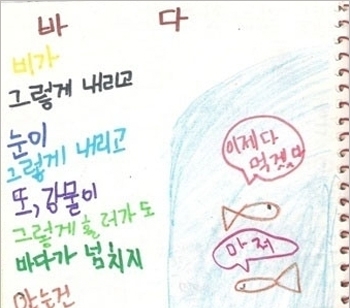 바 다
비가
그렇게 내리고
눈이
그렇게 내리고
또, 강물이
그렇게 흘러가도
바다가 넘치지
이제다
마저